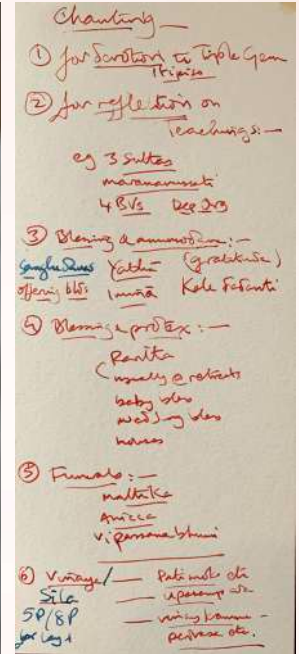 Chanting
① for devotion to Triple Gem
Itipiso
② for reflection on
Teachings:-
eg 3 Suttas
marananussati
4 BVs Dep
③ Blessing & anumodana:-
Sangha Yathā (gratitude)
offering blds Imīnā Kale Dadanti
④ Blessing & protex:-
Paritta
(usually @ retreats
baby bless
wedding bless
houses
⑤ Funerals:-
matika
Anicca
vipassana bhumi
⑥ Vinaya/ Patimok etc
Sila
5P/8P
for lay